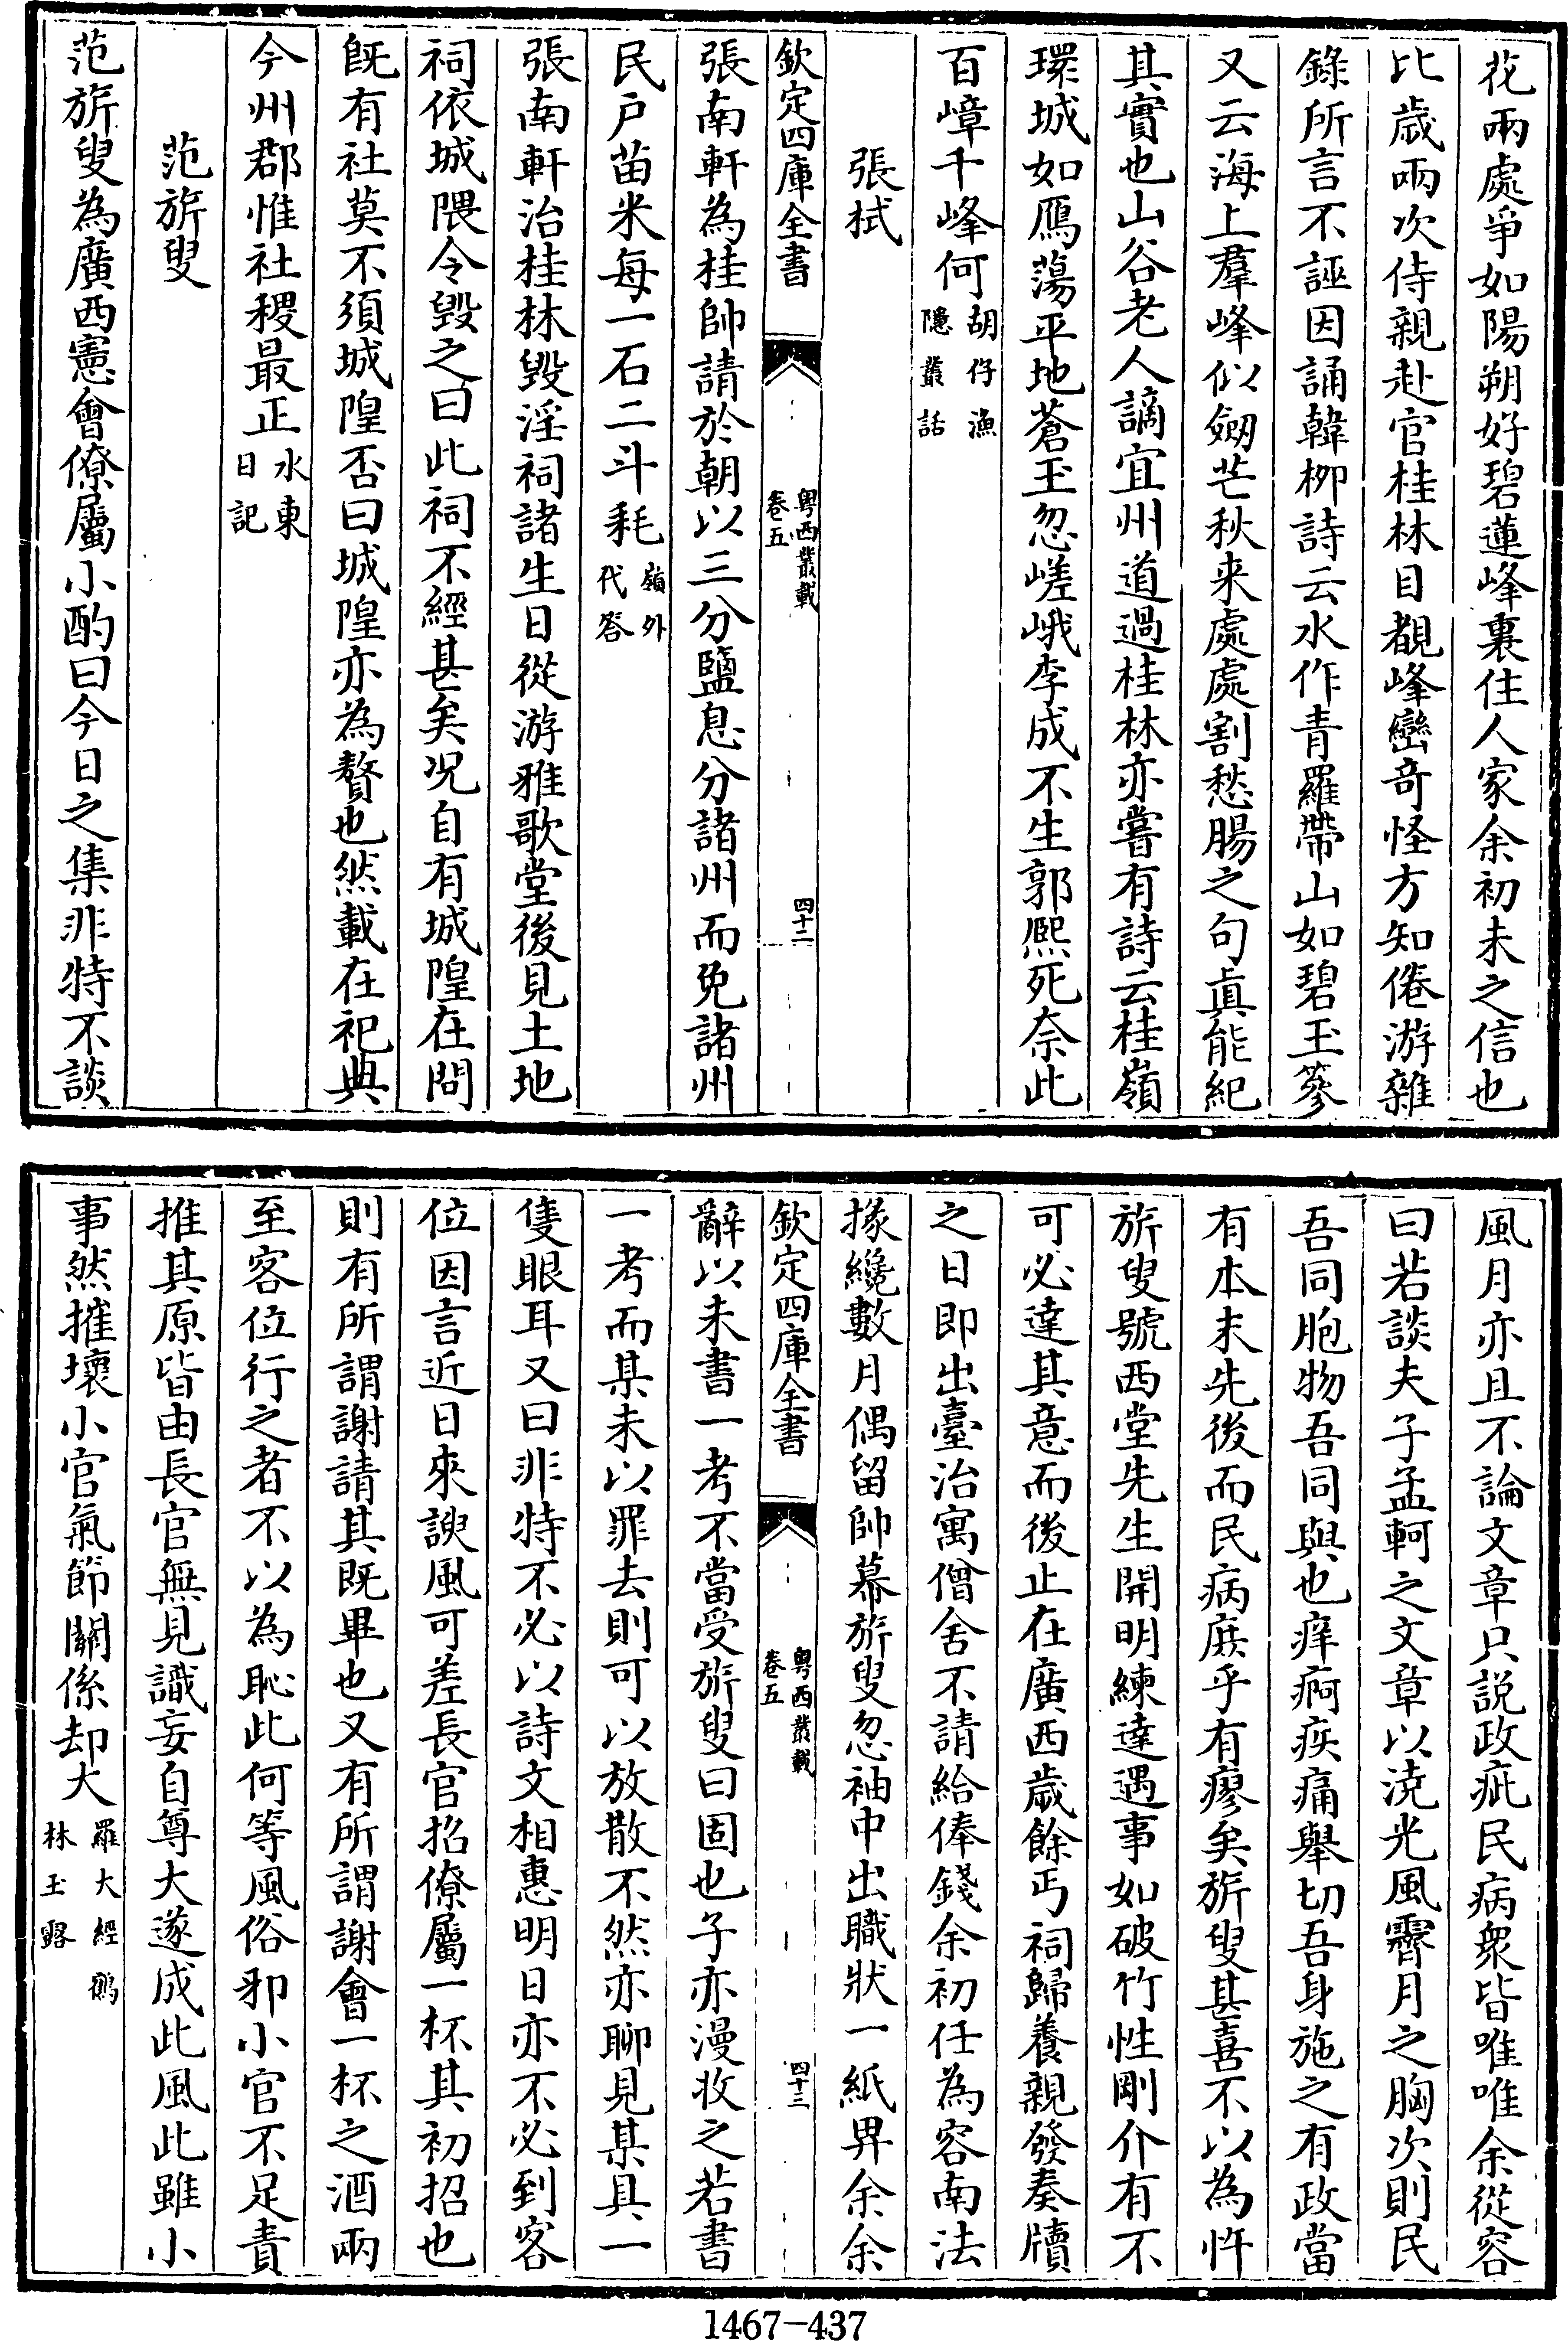 花兩處爭如陽朔好碧蓮峰裏住人家余初未之信也
比歲兩次侍親赴官桂林目覩峰巒竒怪方知倦游雜
錄所言不誣因誦韓柳詩云水作青羅帶山如碧玉篸
又云海上羣峰似劒芒秋来處處割愁腸之句真能紀
其實也山谷老人謫宜州道過桂林亦嘗有詩云桂嶺
環城如鴈蕩平地蒼玉忽嵯峨李成不生郭熙死奈此
百嶂千峰何胡仔漁隱叢話
張栻
欽定四庫全書 粤西叢載卷五 四十二
張南軒為桂帥請於朝以三分鹽息分諸州而免諸州
民户苗米每一石二斗耗嶺外代答
張南軒治桂林毁淫祠諸生日從游雅歌堂後見土地
祠依城隈令毁之曰此祠不經甚矣况自有城隍在問
旣有社莫不須城隍否曰城隍亦為贅也然載在祀典
今州郡惟社稷最正水東日記
范旂叟
范旂叟為廣西憲會僚屬小酌曰今日之集非特不談
風月亦且不論文章只説政疵民病衆皆唯唯余從容
曰若談夫子孟軻之文章以澆光風霽月之胸次則民
吾同胞物吾同與也痒痾疾痛舉切吾身施之有政當
有本末先後而民病庶乎有瘳矣旂叟甚喜不以為忤
旂叟號西堂先生開明練達遇事如破竹性剛介有不
可必達其意而後止在廣西歲餘丐祠歸養親發奏牘
之日即出臺治寓僧舍不請給俸錢余初任為容南法
掾纔數月偶留帥幕旂叟忽袖中出職狀一紙畀余余
欽定四庫全書 粤西叢載卷五 四十三
辭以未書一考不當受旂叟曰固也子亦漫收之若書
一考而某未以罪去則可以放散不然亦聊見某具一
隻眼耳又曰非特不必以詩文相惠明日亦不必到客
位因言近日來諛風可差長官招僚屬一杯其初招也
則有所謂謝請其既畢也又有所謂謝會一杯之酒兩
至客位行之者不以為恥此何等風俗邪小官不足責
推其原皆由長官無見識妄自尊大遂成此風此雖小
事然摧壞小官氣節關係却大羅大經鶴林玉露
1467-437